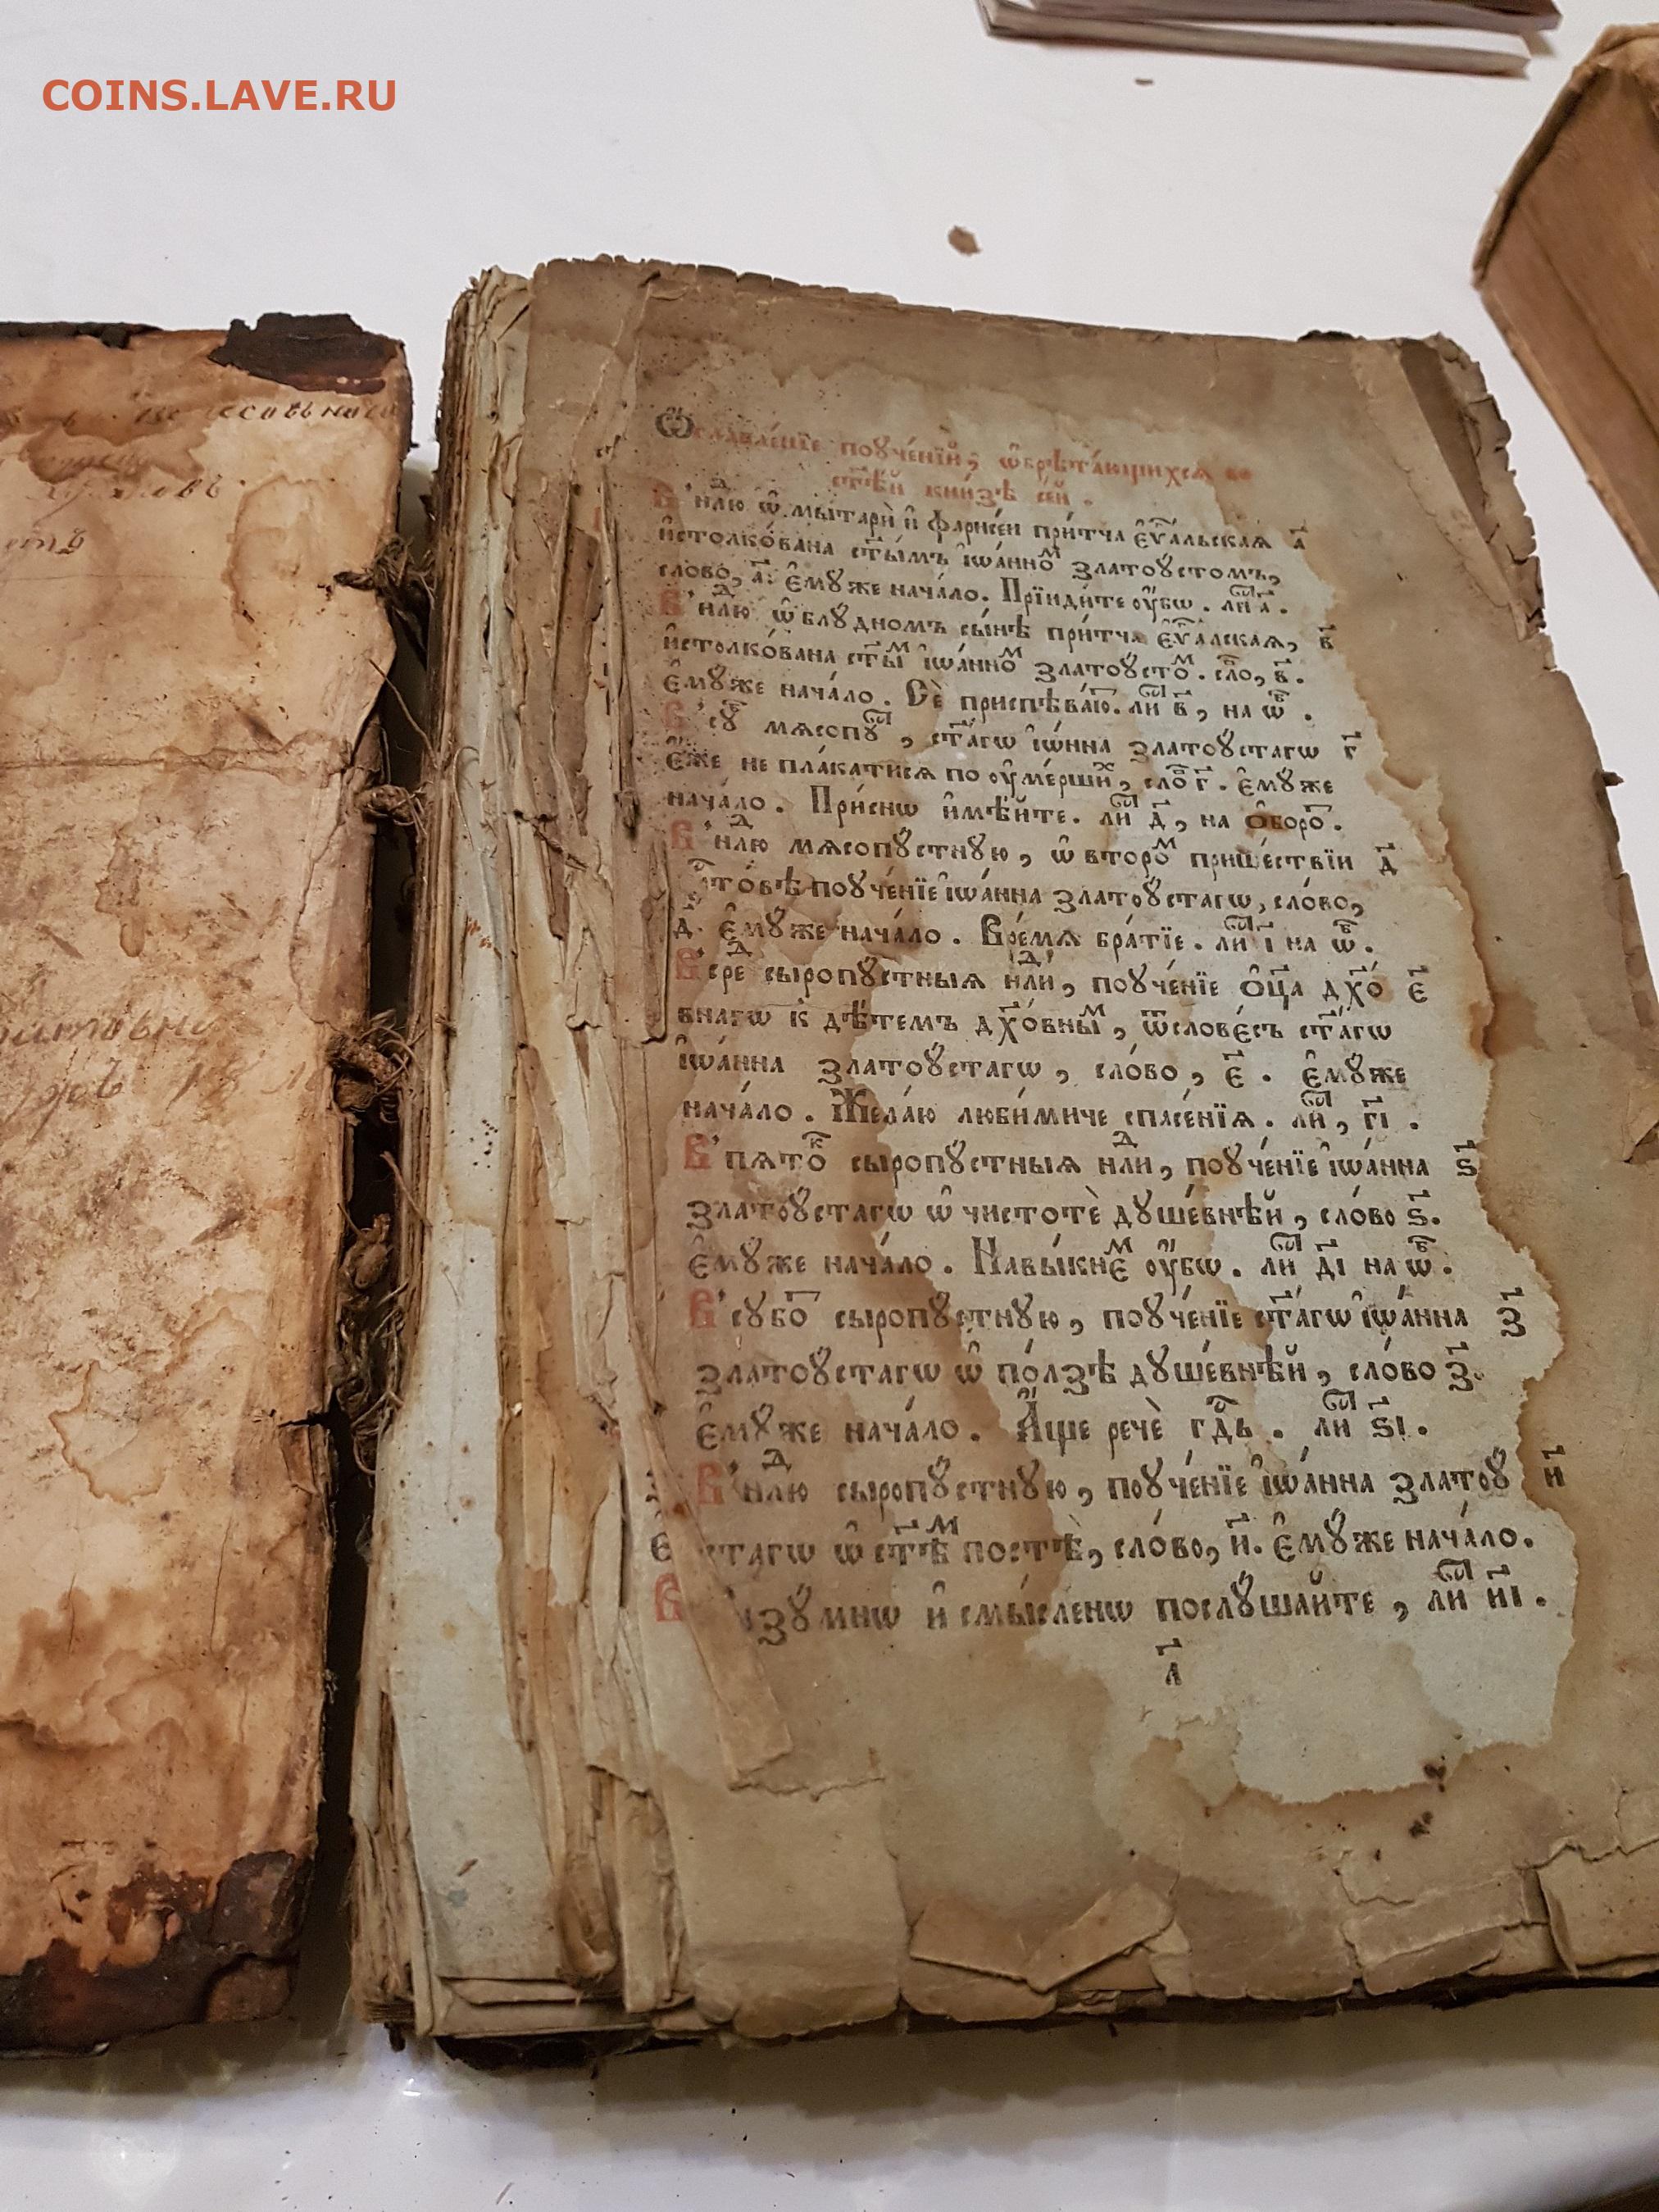 COINS.LAVE.RU
Ѡглавле́нїе поꙋче́нїй, ѡ҆брѣта́ющихсѧ во
ст҃ѣ́й кни́зѣ се́й.
В' нⷣлю ѡ҆ мытарѝ и҆ фарисе́и при́тча є҆ѵⷢ҇альскаѧ а҃
и҆столко́вана ст҃ы́мъ і҆ѡа́нноⷨ златоꙋ́стомъ,
сло́во, а҃. Є҆мꙋ́же нача́ло. Прїиди́те ᲂу҆̀бѡ. лиⷭ҇ а҃.
В' нⷣлю ѡ҆ блꙋ́дномъ сы́нѣ при́тча є҆ѵⷢ҇а́лскаѧ, в҃
и҆столко́вана ст҃ыⷨ і҆ѡа́нноⷨ златоꙋ́стоⷨ. сло, в҃.
Є҆мꙋ́же нача́ло. Сѐ приспѣваю. лиⷭ҇ в҃, на ѡ҆ⷠ.
В' сꙋⷠ мѧсопꙋⷭ҇, ст҃а́гѡ і҆ѡ́нна златоꙋ́стагѡ г҃
Є҆́же не пла́катисѧ по ᲂу҆ме́ршиⷯ, сло г҃. Є҆мꙋ́же
нача́ло. При́снѡ и҆мѣ́йте. лиⷭ҇ д҃, на ѻ҆боро.
В' нⷣлю мѧсопꙋ́стнꙋю, ѡ҆ второⷨ прише́ствїи д҃
поꙋче́нїе і҆ѡа́нна златоꙋ́стагѡ, сло́во,
д҃. Є҆мꙋ́же нача́ло. Вре́мѧ бра́тїе. лиⷭ҇ і҃ на ѡ҆ⷠ.
В' среⷣ сыропꙋ́стныѧ нⷣли, поꙋче́нїе ѻ҆ц҃а дх҃о́ є҃
внагѡ к дѣ́темъ дх҃о́вныⷨ, ѿ слове́съ ст҃а́гѡ
і҆ѡа́нна златоꙋ́стагѡ, сло́во, є҃. Є҆мꙋ́же
нача́ло. Жела́ю люби́миче спасе́нїѧ. лиⷭ҇, г҃і.
В' пѧтоⷦ сыропꙋ́стныѧ нⷣли, поꙋче́нїе і҆ѡа́нна ѕ҃
златоꙋ́стагѡ ѡ҆ чистотѐ дꙋше́внѣй, сло́во ѕ҃.
Є҆мꙋ́же нача́ло. Навы́кнеⷨ ᲂу҆̀бѡ. лиⷭ҇ д҃і на ѡ҆ⷠ.
В' сꙋбо сыропꙋ́стнꙋю, поꙋче́нїе ст҃а́гѡ і҆ѡа́нна з҃
златоꙋ́стагѡ ѡ҆ по́лзѣ дꙋше́внѣй, сло́во з҃.
Є҆мꙋ́же нача́ло. А҆́ще речѐ гдⷭ҇ь. лиⷭ҇ ѕ҃і.
В' нⷣлю сыропꙋ́стнꙋю, поꙋче́нїе і҆ѡа́нна златоꙋ́ и҃
стагѡ ѡ҆ ст҃ѣⷨ постѣ̀, сло́во, и҃. Є҆мꙋ́же нача́ло.
и҆ смы́сленѡ послꙋ́шайте, лиⷭ҇ и҃і.
а҃